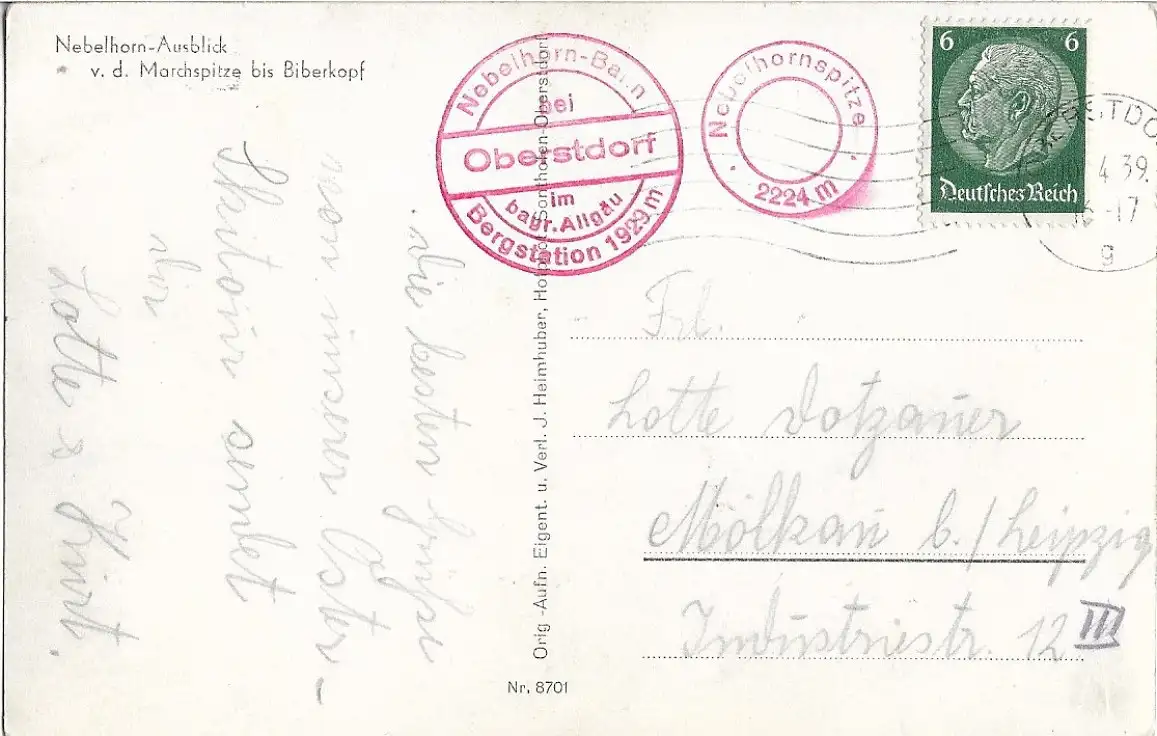 Nebelhorn-Ausblick
v. d. Marchspitze bis Biberkopf
Nebelhorn-Bahn
bei
Oberstdorf
im
bayr. Allgäu
Bergstation 1929 m
Nebelhornspitze
2224 m
6 6
Deutsches Reich
4 39.
16-17
g
Die besten Grüße
von unserem Oster-
send
Lotte &
Orig.-Aufn. Eigent. u. Verl. J. Heimhuber, Sonthofen-Oberstdorf
Nr. 8701
Frl.
Lotte Dotzauer
Mölkau b./Leipzig
Industriestr. 12 III